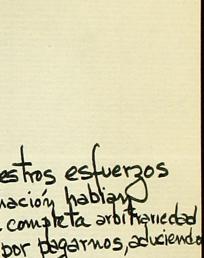 estros esfuerzos
nación habían
completa arbitrariedad
por pagarnos, aduciendo